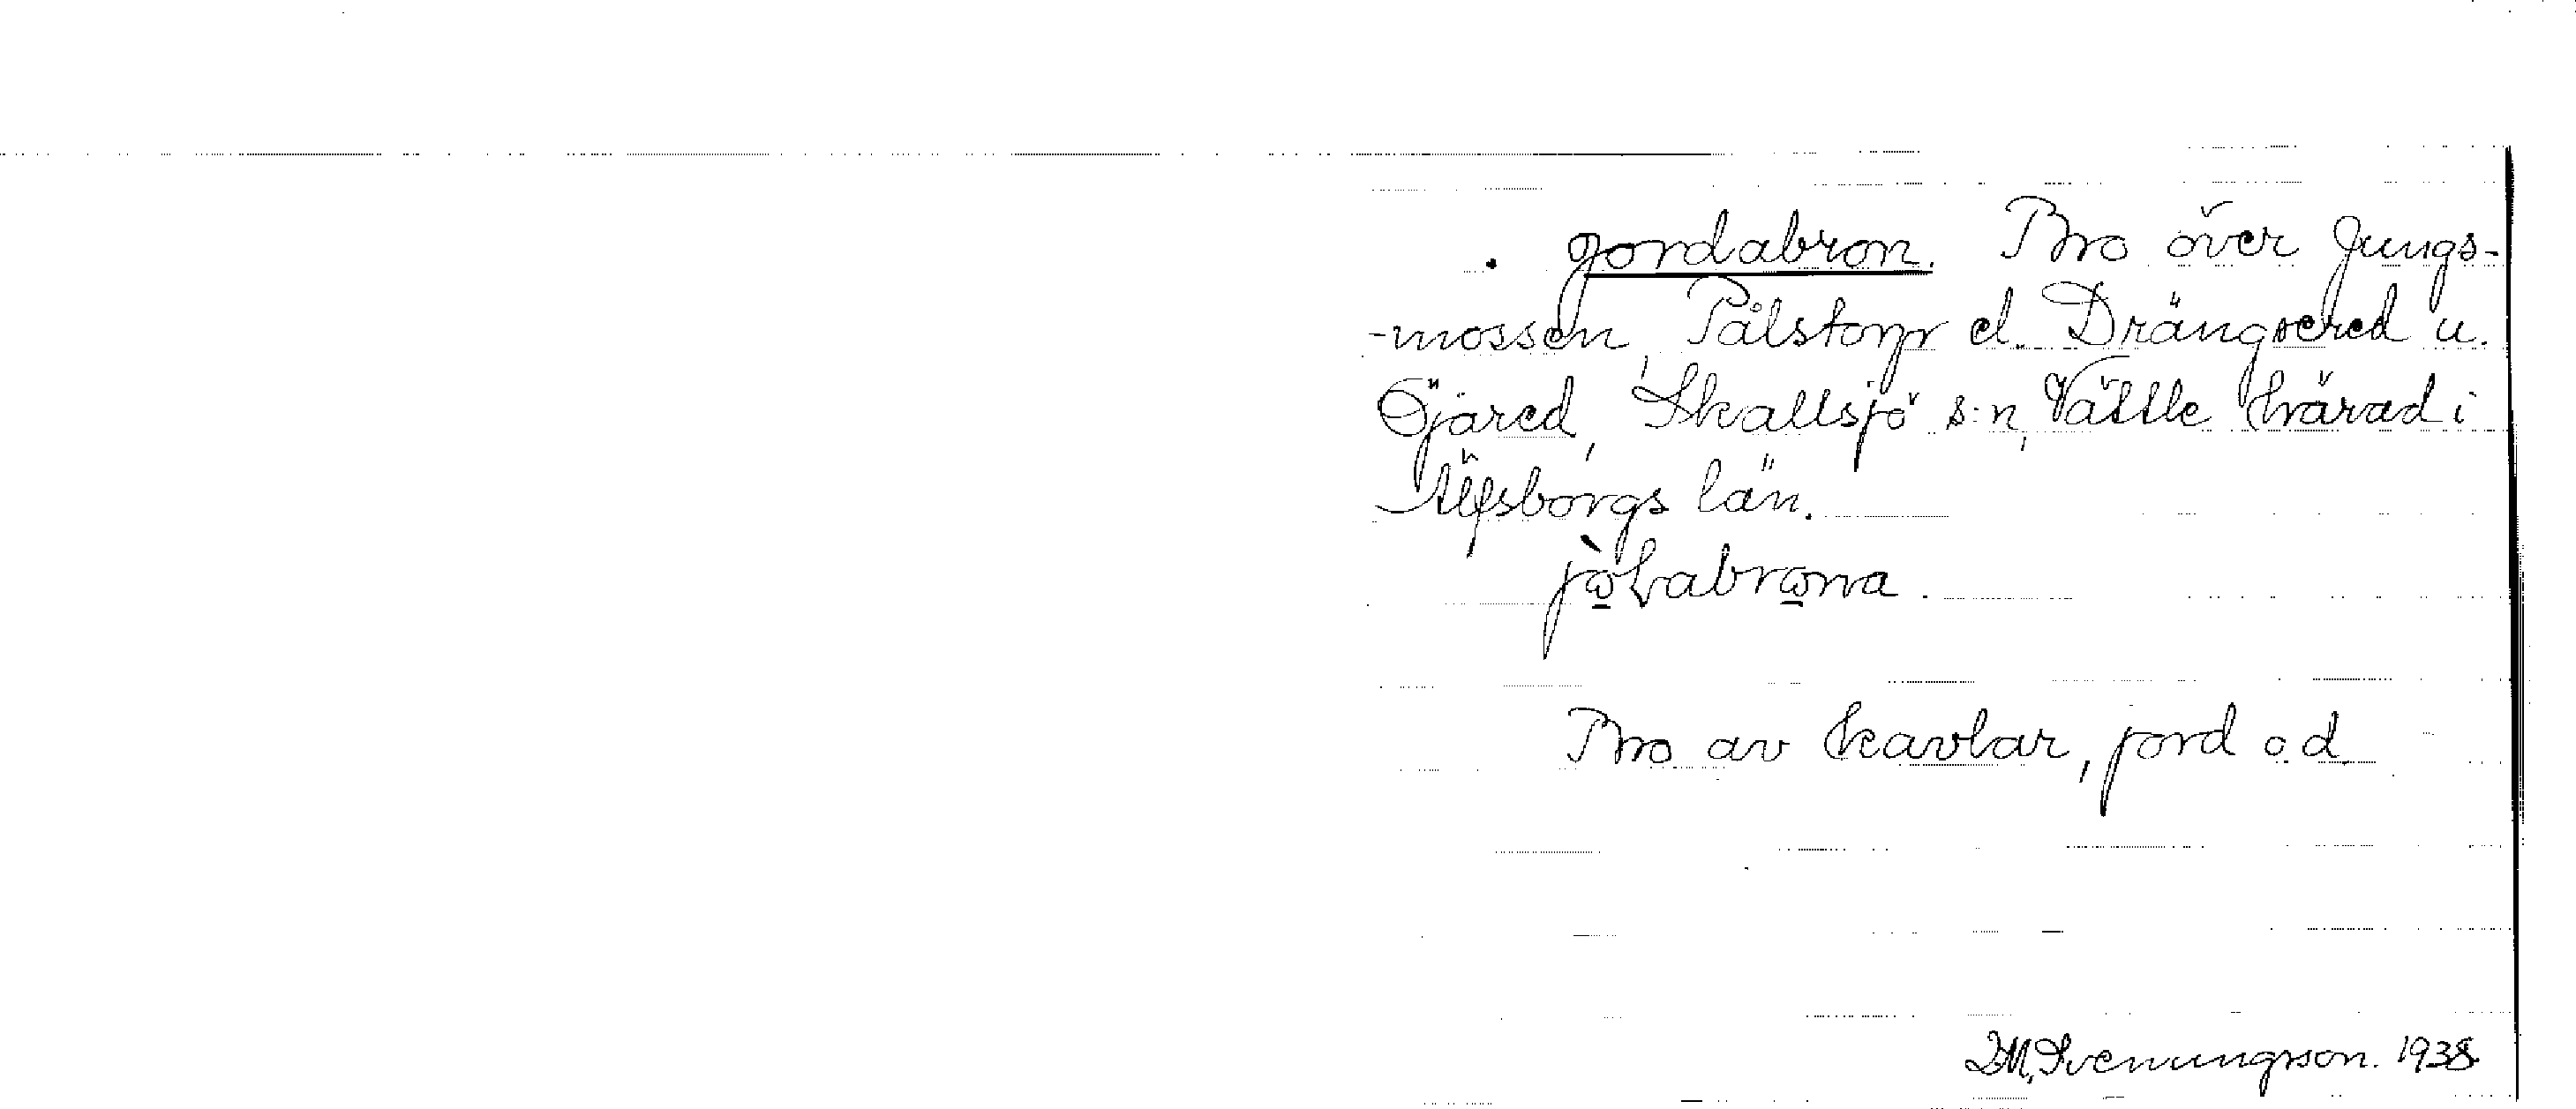 . Jordabron. Bro över Jungs-
-mossen, Pålstorp el. Drängsered u.
Öjared, Skallsjö s:n, Vättle härad i
Älfsborgs län.
Bro av kavlar, jord o d
D.M. Svenungsson. 1938